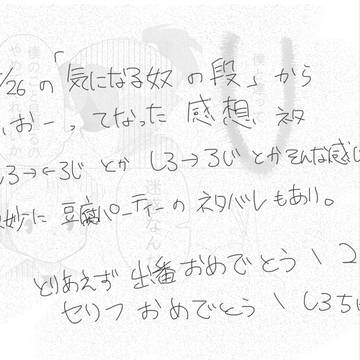 /26の「気になる奴の段」から
おーってなった感想ネタ
しろ→←ろじとかしろ→ろじとかそんな感じ
妙に豆腐パーティーのネタバレもあり。
とりあえず出番おめでとう\2
セリフおめでとう\しろち